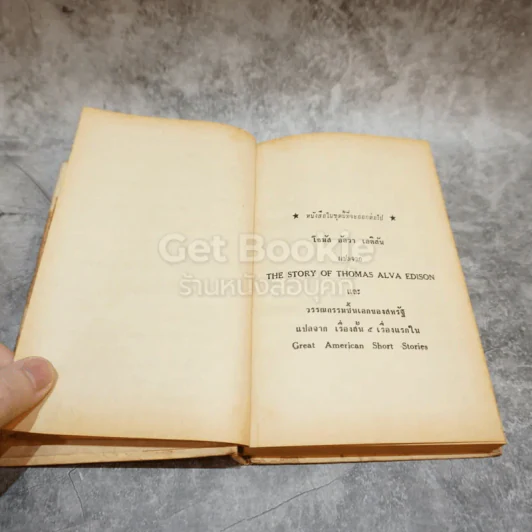 ★ หนังสือในชุดนี้ที่จะออกต่อไป ★
โทมัส อัลวา เอดิสัน
แปลจาก
THE STORY OF THOMAS ALVA EDISON
และ
วรรณกรรมชั้นเอกของสหรัฐ
แปลจาก เรื่องสั้น ๕ เรื่องแรกใน
Great American Short Stories
Get Bookie
ร้านหนังสือบุคกี้